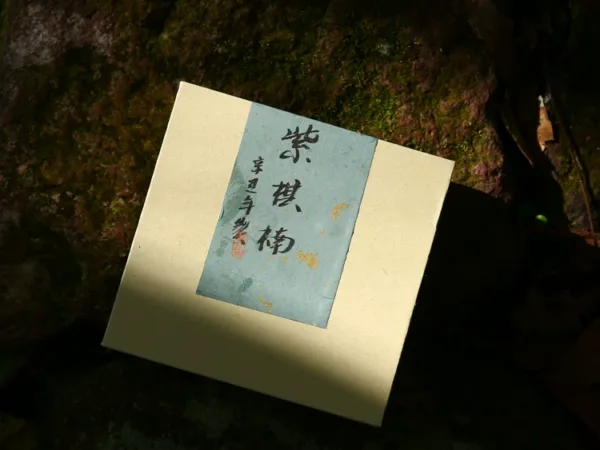 紫棋楠
辛丑年製